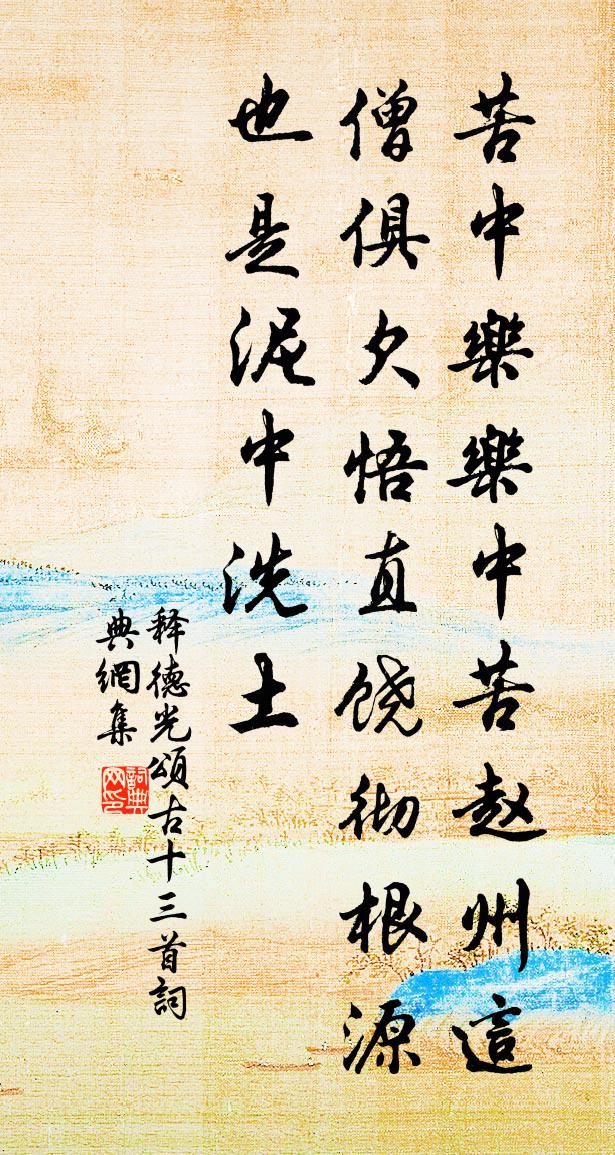 苦中樂樂中苦赵州這
僧俱欠悟直饶彻根源
也是泥中洗土
释德光頌古十三首詞
典網集
詞典
网印